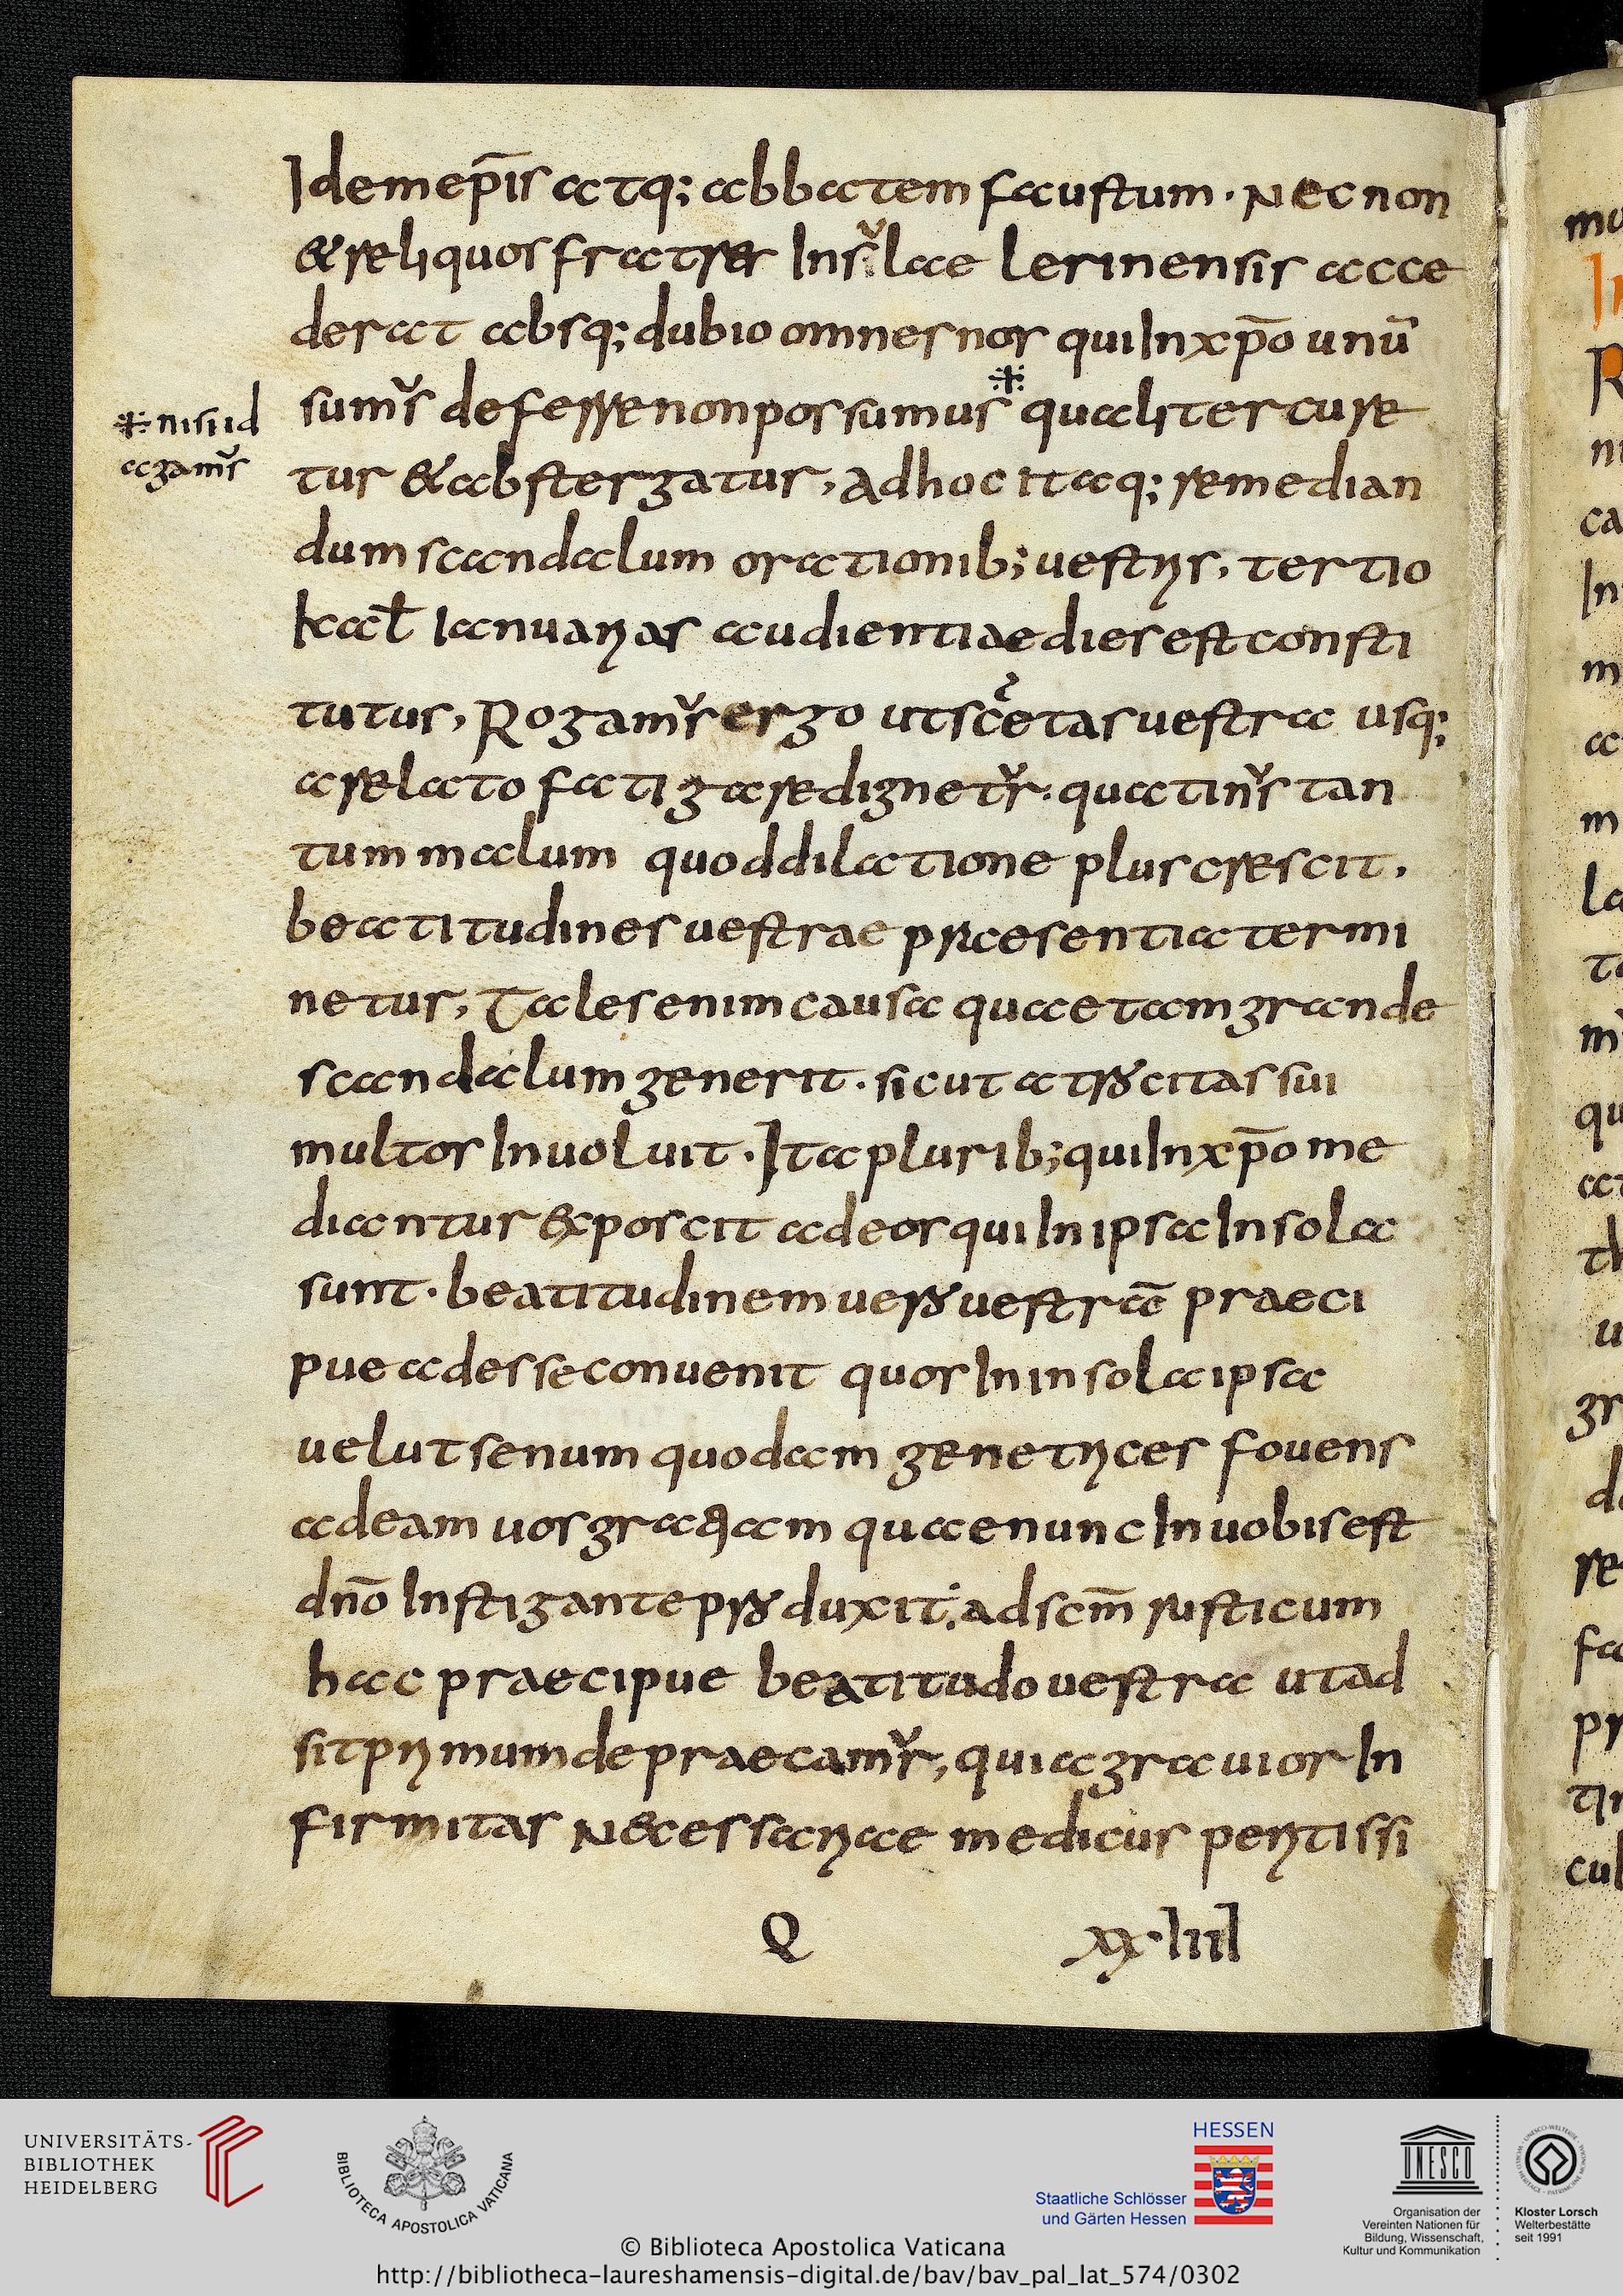 Idem ep̄is atq; abbatem faustum. Nec non
& reliquos fratres Insulae lerinensis acce
derat absq; dubio omnes nos qui In xp̄o unū
sumus deferre non possumus qualiter cure
※ nisi id
agamus
tur & abstergatur, Ad hoc itaq; remedian
dum scandalum orationib; uestris, tertio
kal̄ Ianuarias audientiae dies est consti
tutus, Rogamus ergo ut sc̄etas uestra usq;
arelato fatigare dignetur. quatinus tan
tum malum quod dilatione plus crescit.
beatitudines uestrae praesentia termi
netur, Tales enim causa quae tam grande
scandalum generit. sicut atrocitas sui
multos Inuoluit. Ita plurib; qui In xp̄o me
diantur exposcit ad eos qui In ipsa Insola
sunt. beatitudinem uero uestrā praeci
pue adesse conuenit quos In insola ipsa
uelut senum quodam genetrices fouens
ad eam uos gratiam quae nunc In uobis est
dn̄o Instigante produxit. ad scm̄ rusticum
hac praecipue beatitudo uestra ut ad
sit primum depraecamur, quia grauior In
firmitas Necessariae medicus peritissi
Q XX·IIII
UNIVERSITÄTS-
BIBLIOTHEK
HEIDELBERG
BIBLIOTECA APOSTOLICA VATICANA
HESSEN
Staatliche Schlösser
und Gärten Hessen
UNESCO
Organisation der
Vereinten Nationen für
Bildung, Wissenschaft,
Kultur und Kommunikation
Kloster Lorsch
Welterbestätte
seit 1991
© Biblioteca Apostolica Vaticana
http://bibliotheca-laureshamensis-digital.de/bav/bav_pal_lat_574/0302